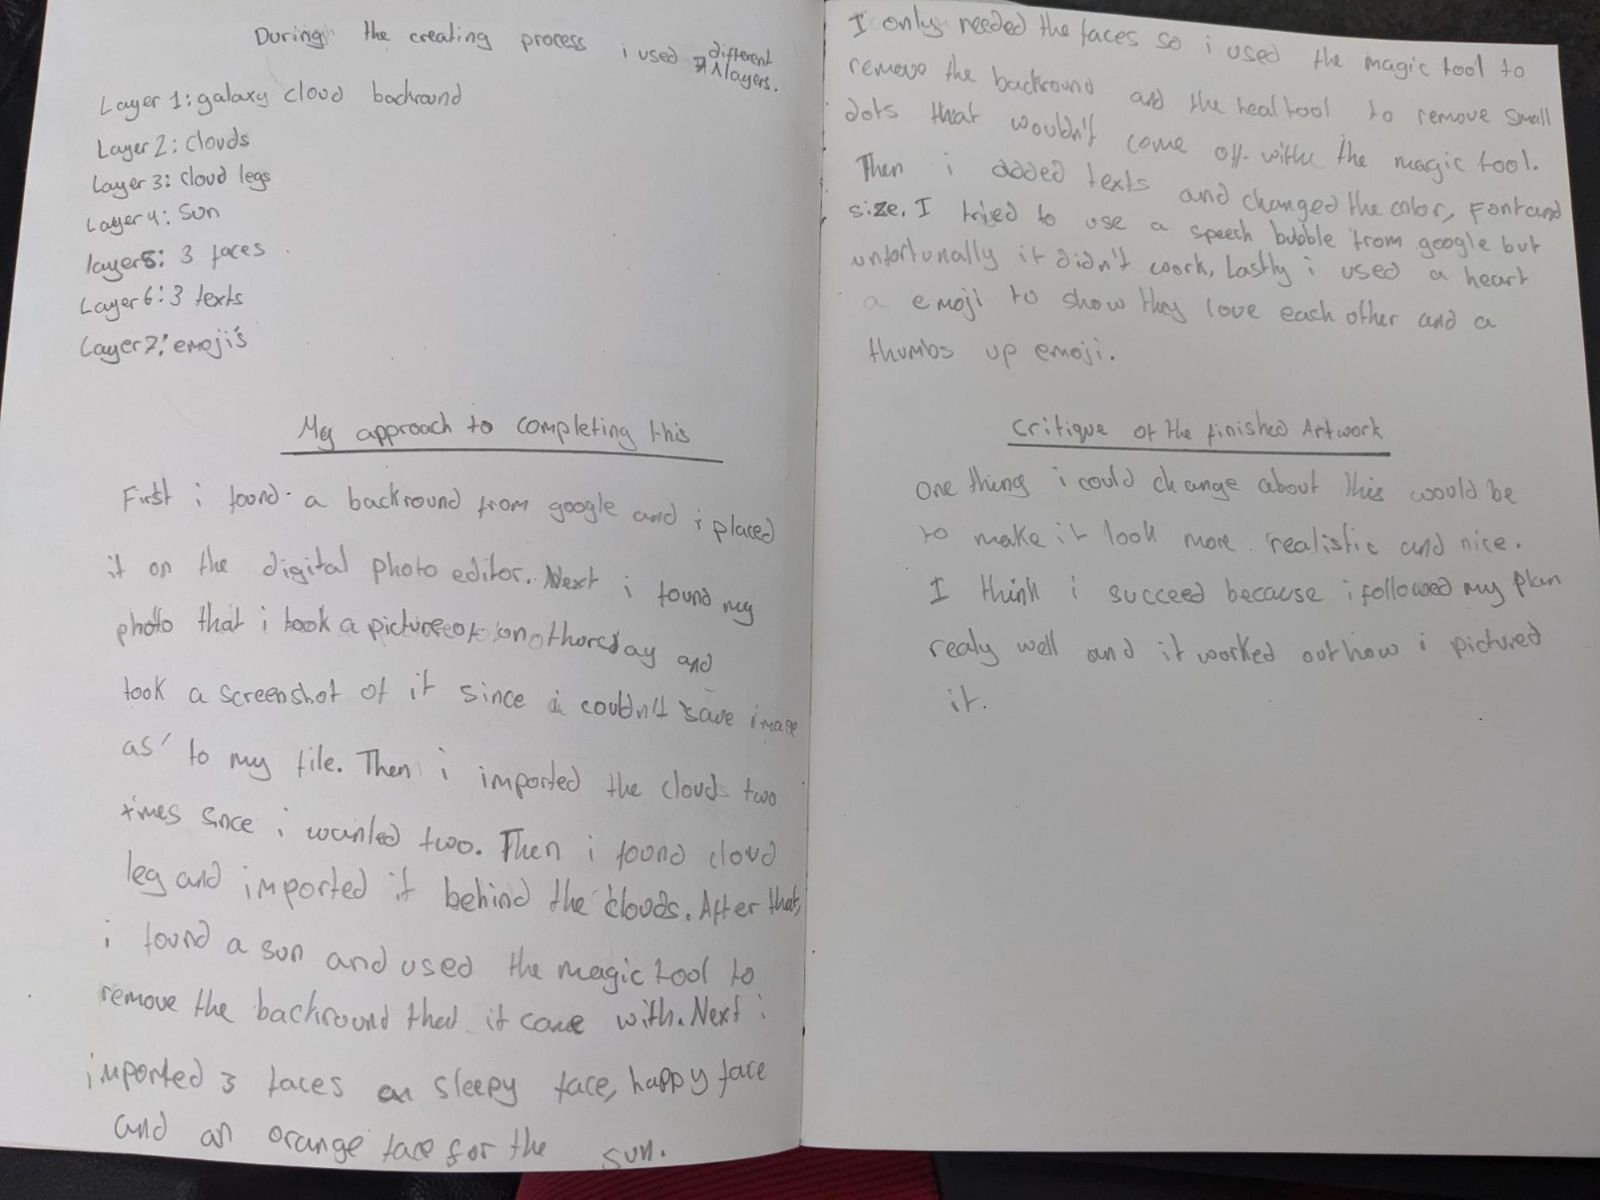 During the creating process i used 7 different layers.
Layer 1: galaxy cloud backround
Layer 2: clouds
Layer 3: cloud legs
Layer 4: Sun
layer 5: 3 faces
Layer 6: 3 texts
Layer 7: emoji's
My approach to completing this
First i found a backround from google and i placed
it on the digital photo editor. Next i found my
photo that i took a picture of on thursday and
took a screenshot of it since i couldn't save image
as' to my file. Then i imported the cloud two
times since i wanted two. Then i found cloud
leg and imported it behind the clouds. After that,
i found a sun and used the magic tool to
remove the backround that it came with. Next i
imported 3 faces a sleepy face, happy face
and an orange face for the sun.
I only needed the faces so i used the magic tool to
remove the backround and the heal tool to remove small
dots that wouldn't come off with the magic tool.
Then i added texts and changed the color, font and
size. I tried to use a speech bubble from google but
unfortunally it didn't work. Lastly i used a heart
a emoji to show they love each other and a
thumbs up emoji.
Critique of the finished Artwork
One thing i could change about this would be
to make it look more realistic and nice.
I think i succeed because i followed my plan
realy well and it worked out how i pictured
it.